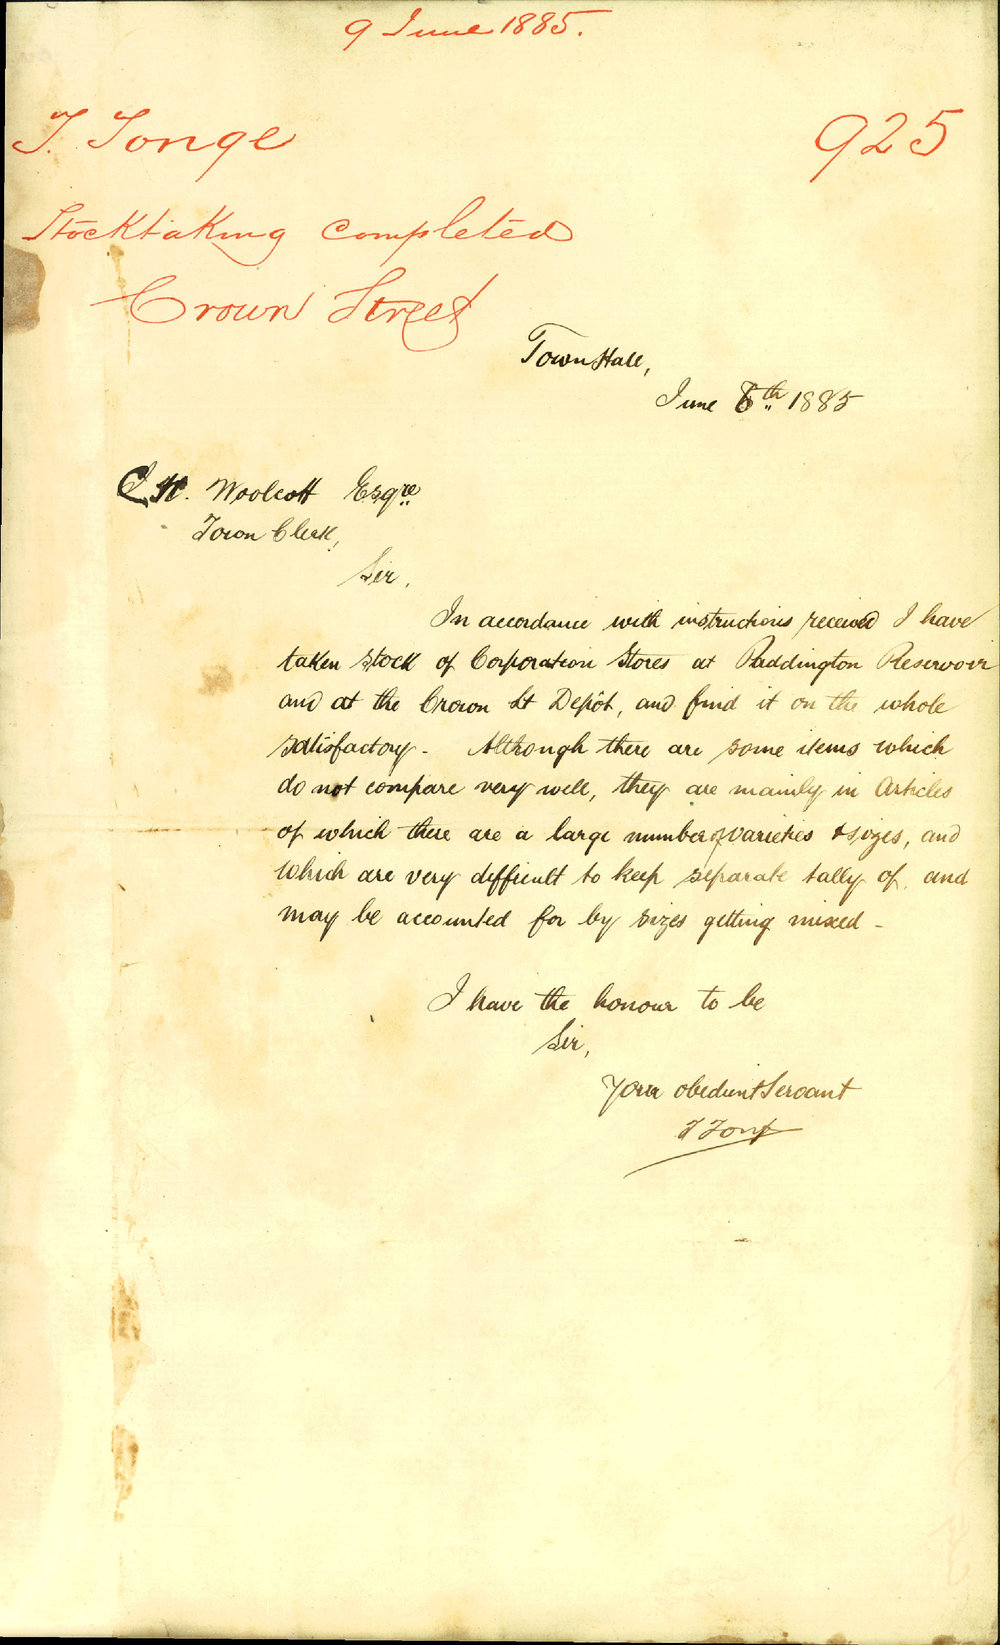 9 June 1885.
T. Tonge
925
Stocktaking completed
Crown Street
Town Hall,
June 8th 1885
C. H. Woolcott Esqre
Town Clerk,
Sir,
In accordance with instructions received I have
taken stock of Corporation Stores at Paddington Reservoir
and at the Crown St Depôt, and find it on the whole
satisfactory - Although there are some items which
do not compare very well, they are mainly in Articles
of which there are a large number of varieties & sizes, and
which are very difficult to keep separate tally of, and
may be accounted for by sizes getting mixed -
I have the honour to be
Sir,
Your obedient Servant
T Tonge